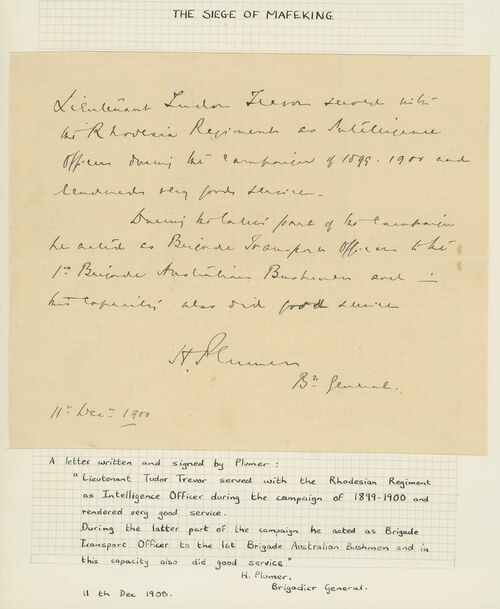 THE SIEGE OF MAFEKING
Lieutenant Tudor Trevor served with
the Rhodesia Regiment as Intelligence
Officer during the Campaign of 1899-1900 and
rendered very good service.
During the latter part of the Campaign
he acted as Brigade Transport Officer to the
1st Brigade Australian Bushmen and in
this capacity also did good service
H. Plumer
Br General.
11th Decr 1900
A letter written and signed by Plumer :
"Lieutenant Tudor Trevor served with the Rhodesian Regiment
as Intelligence Officer during the campaign of 1899-1900 and
rendered very good service.
During the latter part of the campaign he acted as Brigade
Transport Officer to the 1st Brigade Australian Bushmen and in
this capacity also did good service"
H. Plumer.
Brigadier General.
11 th Dec 1900.